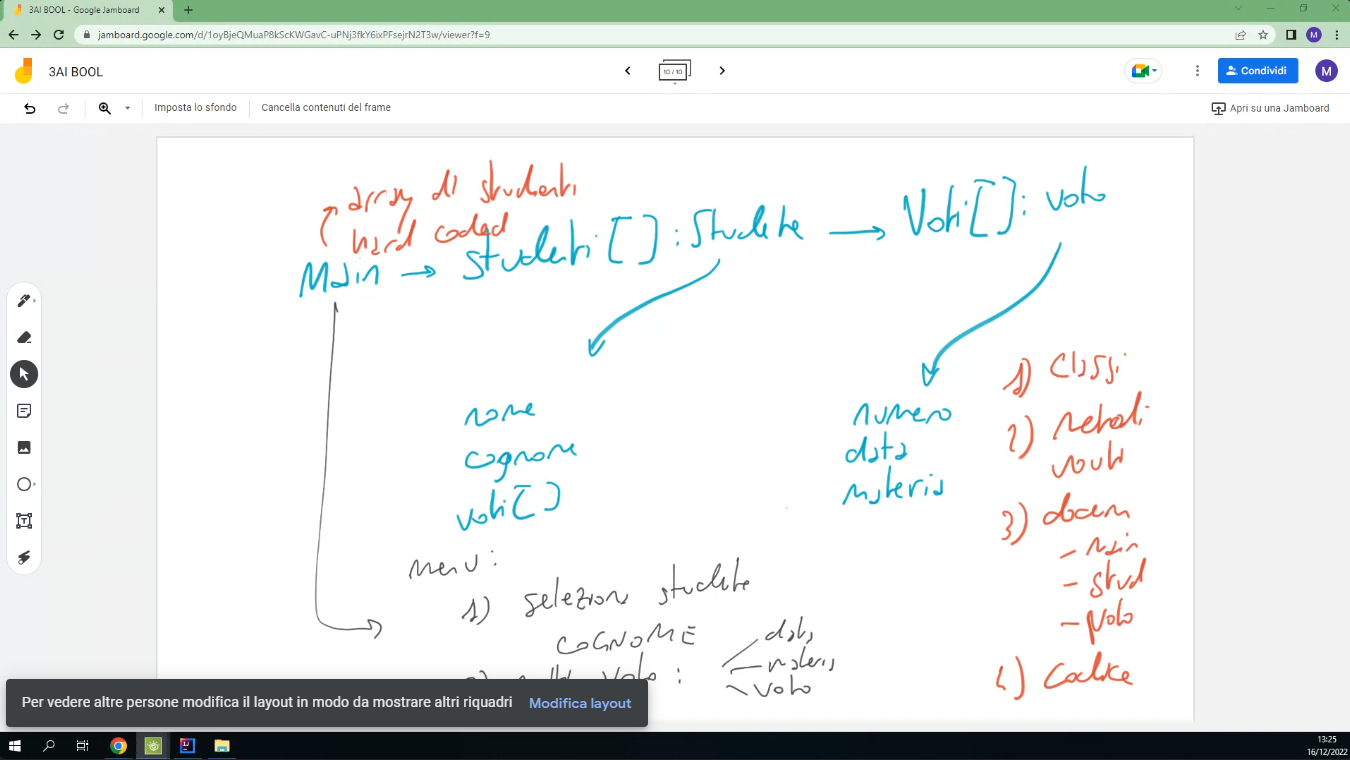 3AI BOOL - Google Jamboard
jamboard.google.com/d/1oyBjeQMuaP8kScKWGavC-uPNj3fkY6ixPFsejrN2T3w/viewer?f=9
M
3AI BOOL
10 / 10
Condividi
M
Imposta lo sfondo
Cancella contenuti del frame
Apri su una Jamboard
array di studenti
hard coded
Main → studenti[]: Studente → Voti[]: voto
nome
cognome
voti[]
numero
data
materia
1) Classi
2) Metodi
vouti
3) docum
- Main
- Stud
- Voto
4) Codice
Menu:
1) selezione studente
COGNOME
voto :
data
materia
voto
Per vedere altre persone modifica il layout in modo da mostrare altri riquadri
Modifica layout
13:25
16/12/2022